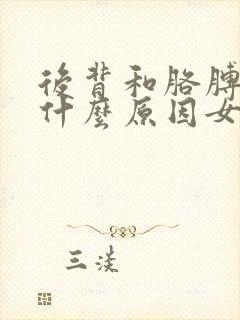 後背和胳膊
什麼原因女
三淡